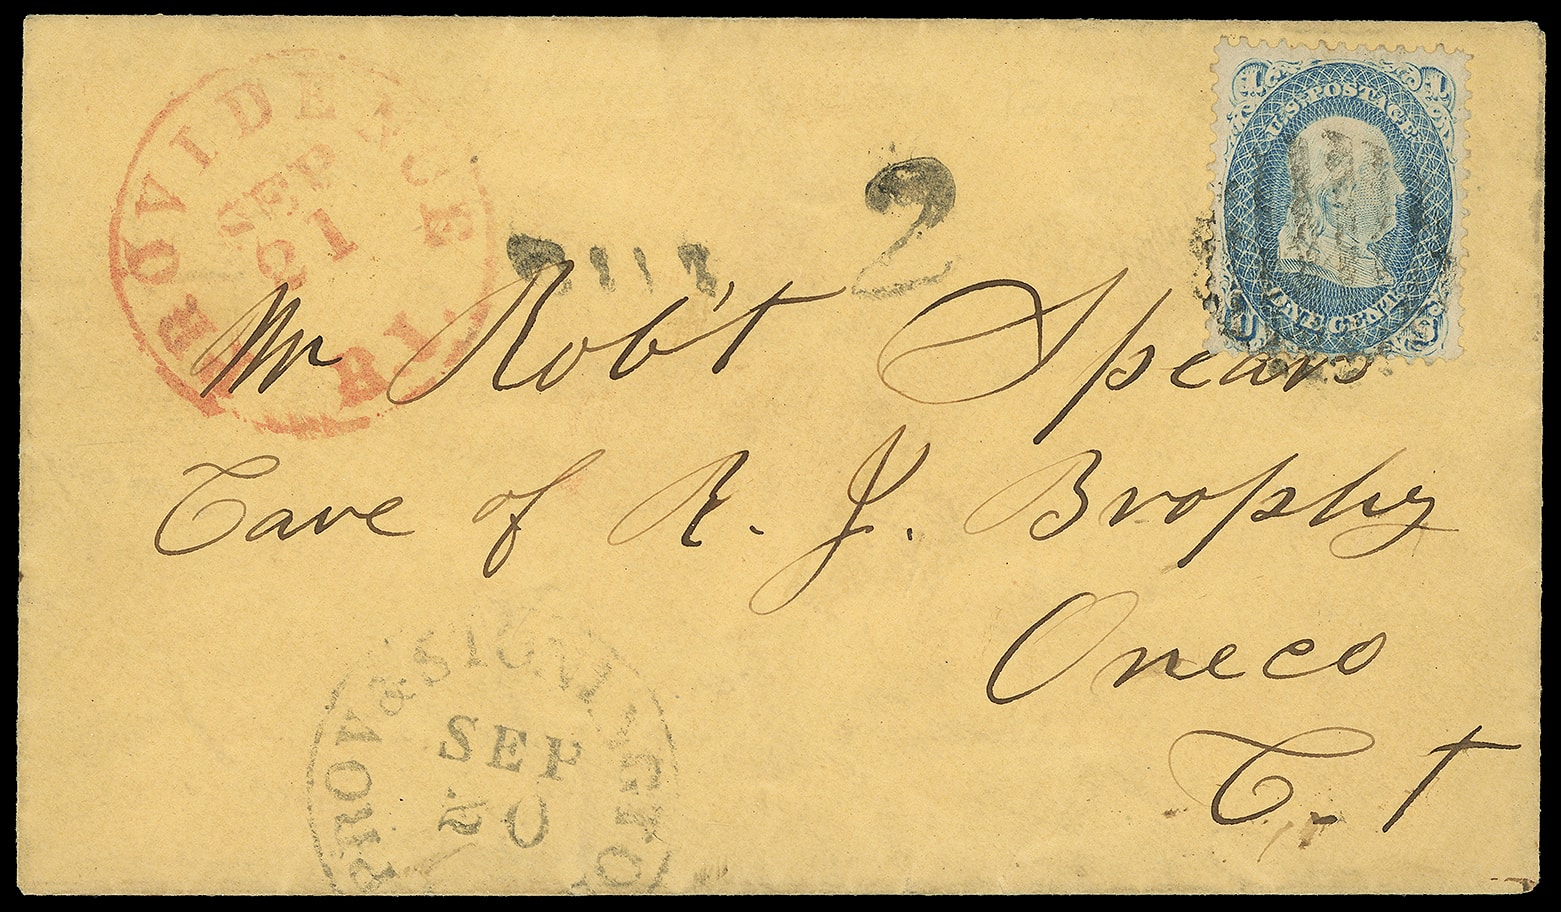 PROVIDENCE
SEP
21
R.I.
DUE 2
1 U.S. POSTAGE. 1
ONE CENT
Mr Rob't Spears
Care of R. J. Brophy
Oneco
C.t
PROV & STONINGTON
SEP
20